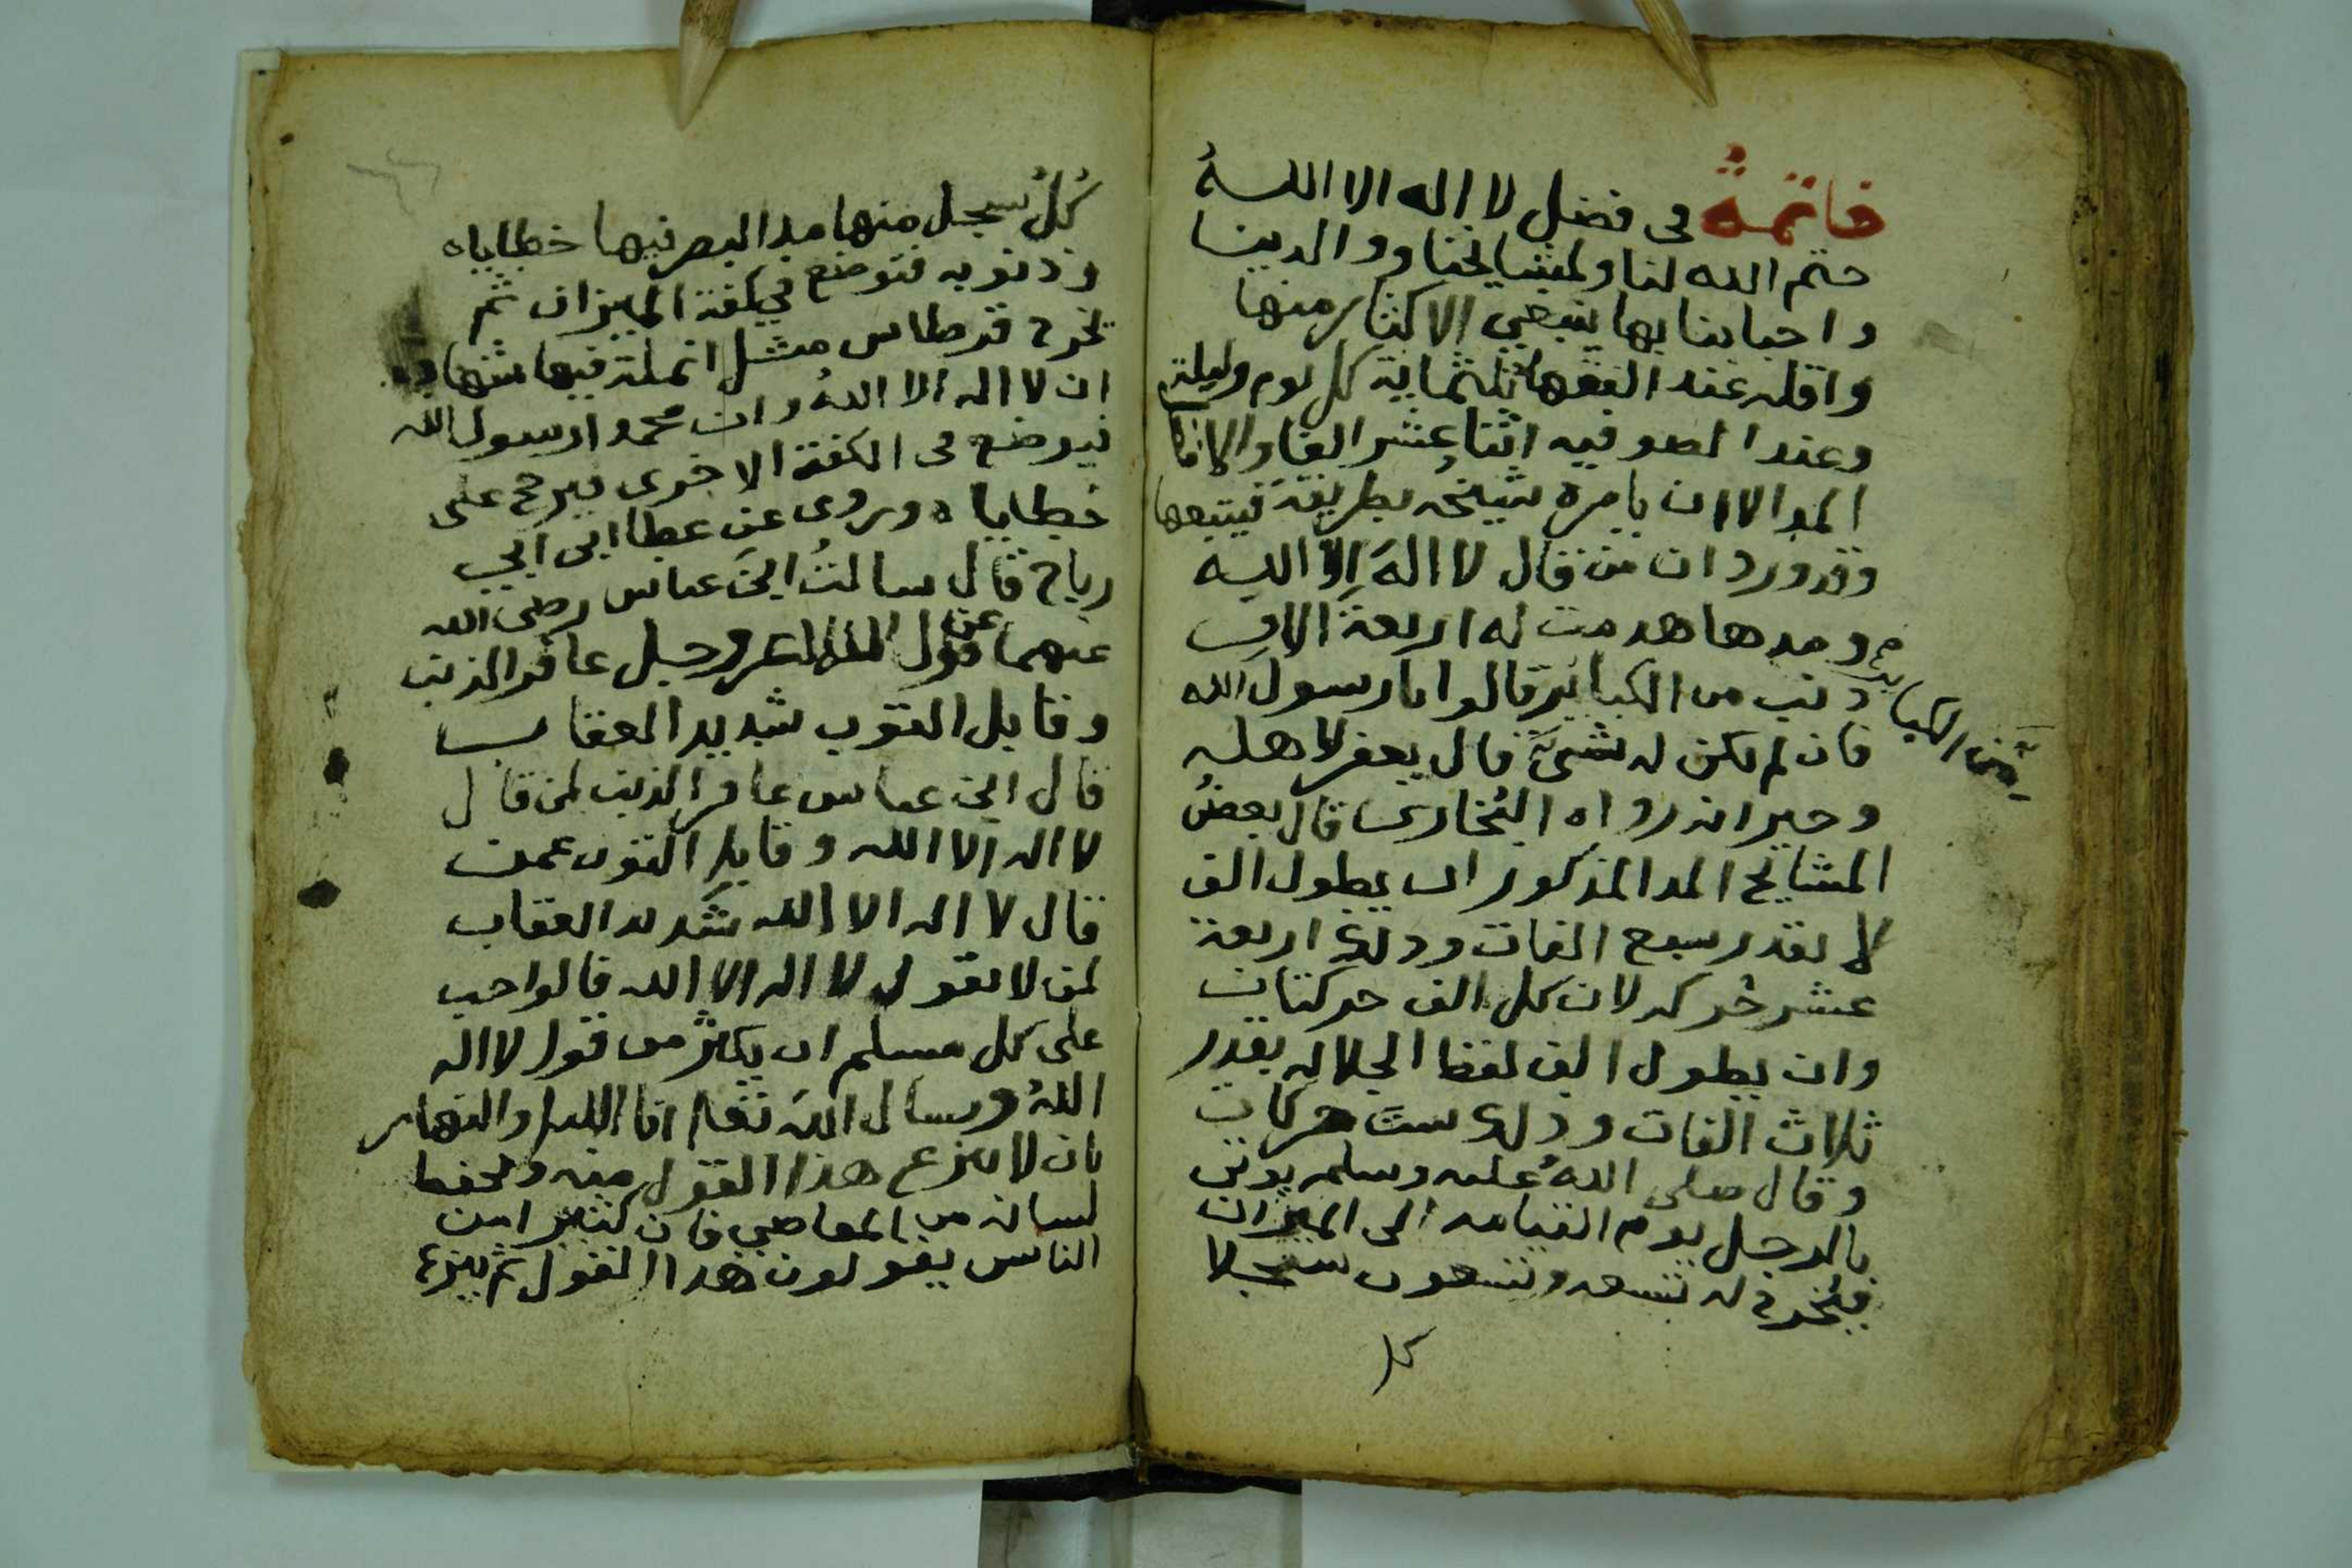 خاتمةٌ في فضل لا اله الا اللهُ
ختم الله لنا ولمشايخنا ووالدينا
واحبابنا بها ينبغي الاكثار منها
واقله عند الفقها ثلثماية كل يوم وليلة
وعند الصوفيه اثنا عشر الفا والافضل
المد الا ان يامره شيخه بطريقة فيتبعها
وقد ورد ان من قال لا الهَ اِلا الله
ومدها هدمت له اربعة الاف
ذنب من الكباير قالوا يا رسول الله
فان لم يكن له شيءٌ قال يغفر لاهله
وجيرانه رواه البُخاري قال بعضُ
المشايخ المد المذكور ان يطول الف
لا بقدر سبع الفات وذلك اربعة
عشر حُركه لان كل الف حركتان
وان يطول الف لفظ الجلاله بقدر
ثلاث الفات وذلك ستَ حركات
وقال صلى اللهُ عليه وسلم يوتى
بالرجل يوم القيامه الى الميزان
فيُخرج له تسعه وتسعون سجلا
من الكباير
كلُ سجل منها مد البصر فيها خطاياه
وذنوبه فتوضع في كفة الميزان ثم
تخرج قرطاس مثل انملة فيها شهادة
ان لا اله الا اللهُ وان محمدا رسول الله
فيوضع في الكفة الاخرى فيرجح على
خطاياه ويروى عن عطا ابن ابي
رباح قال سالتُ ابنَ عباس رضى الله
عنهما عن قول الله عز وجل غافر الذنب
وقابل التوب شديد العقاب
قال ابن عباس غافر الذنب لمن قال
لا اله الا الله وقابل التوب عمن
قال لا اله الا الله شديد العقاب
لمن لا يقول لا اله الا الله فالواجب
على كل مسلم ان يكثر من قول لا اله
اللهُ ويسال اللهَ تعا انا الليل والنهار
بان لا ينزع هذا القول منه ويحفظ
لسانه من المعاصي فان كثيرا من
الناس يقولون هذا القول ثم ينزع